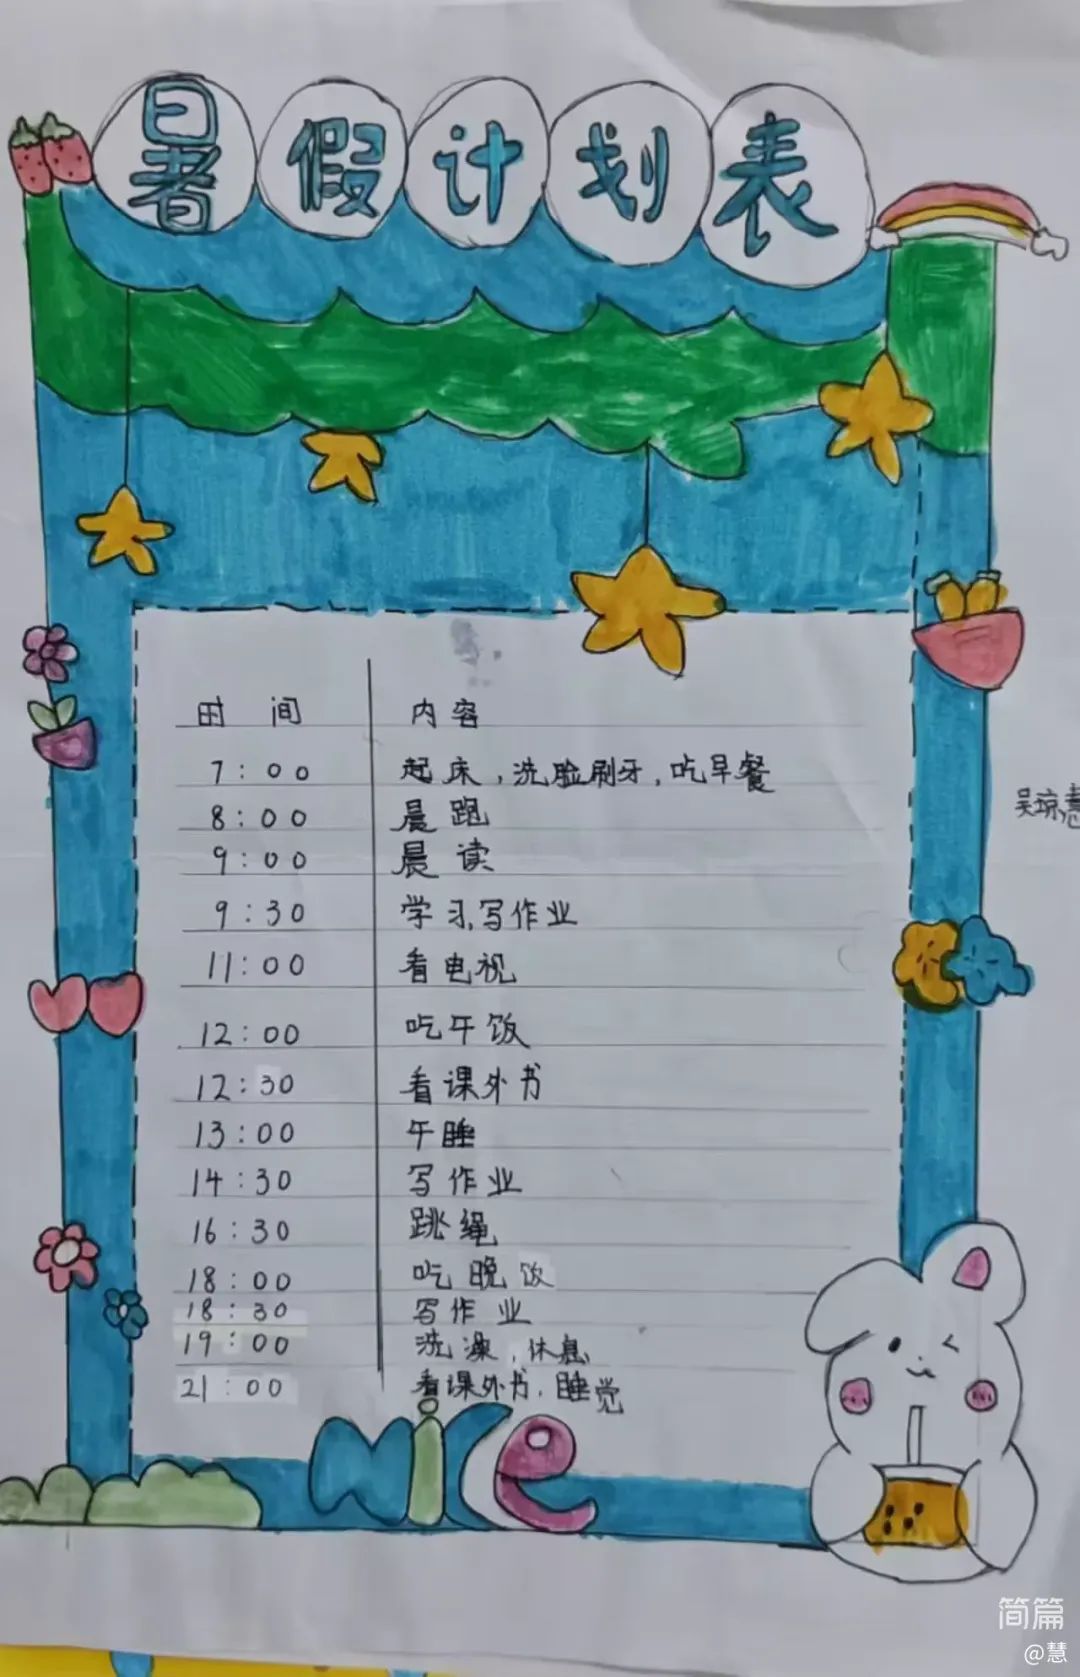 暑假计划表
时间 内容
7:00 起床,洗脸刷牙,吃早餐
8:00 晨跑
9:00 晨读
9:30 学习,写作业
11:00 看电视
12:00 吃午饭
12:30 看课外书
13:00 午睡
14:30 写作业
16:30 跳绳
18:00 吃晚饭
18:30 写作业
19:00 洗澡,休息
21:00 看课外书,睡觉
吴琼慧
NiCe
简篇
@慧